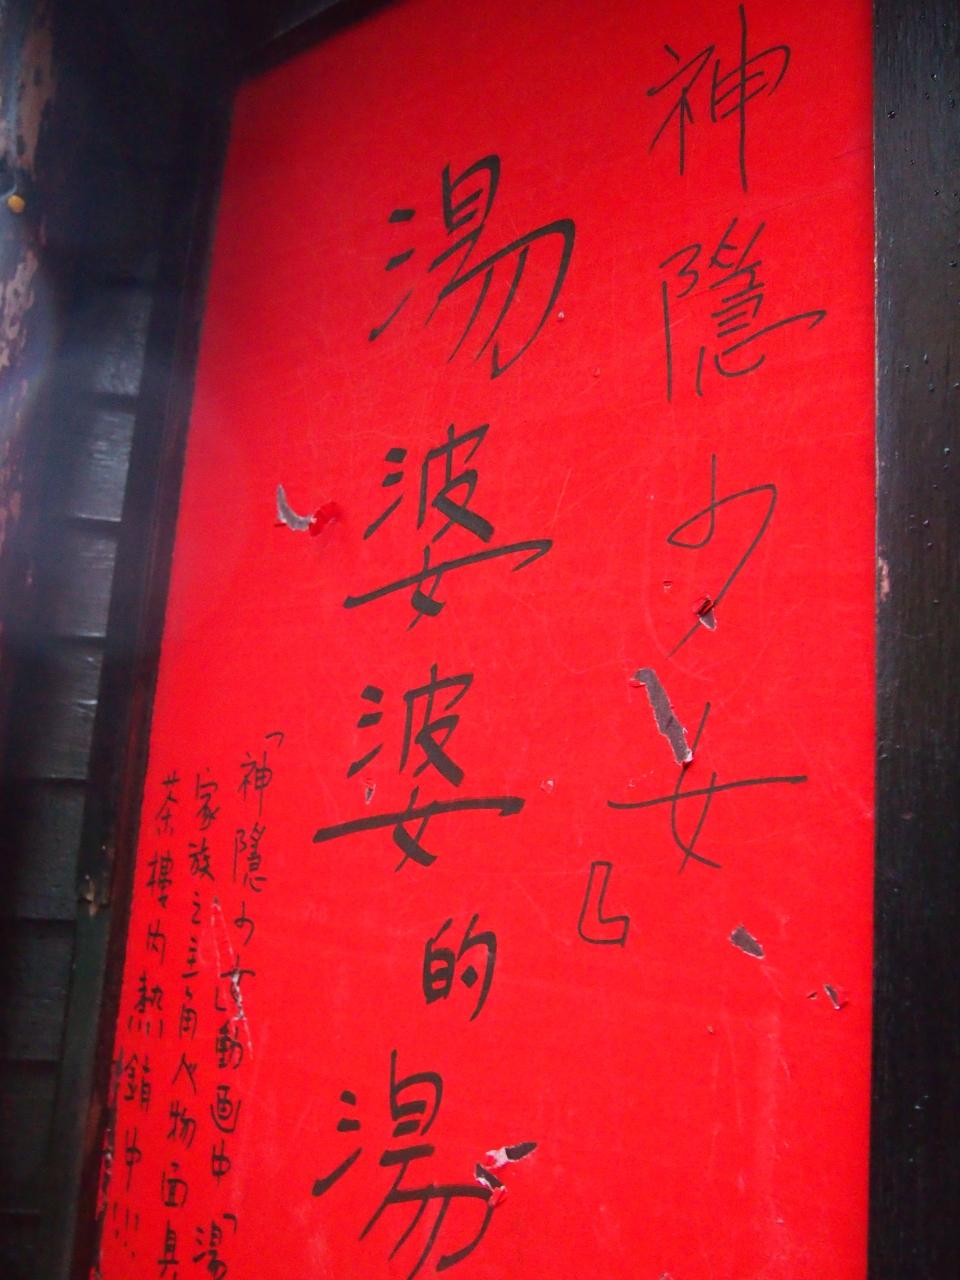 神隱少女」
湯婆婆的湯
「神隱少女」動画中「湯
家族之主角人物面具
茶樓內熱銷中!!!